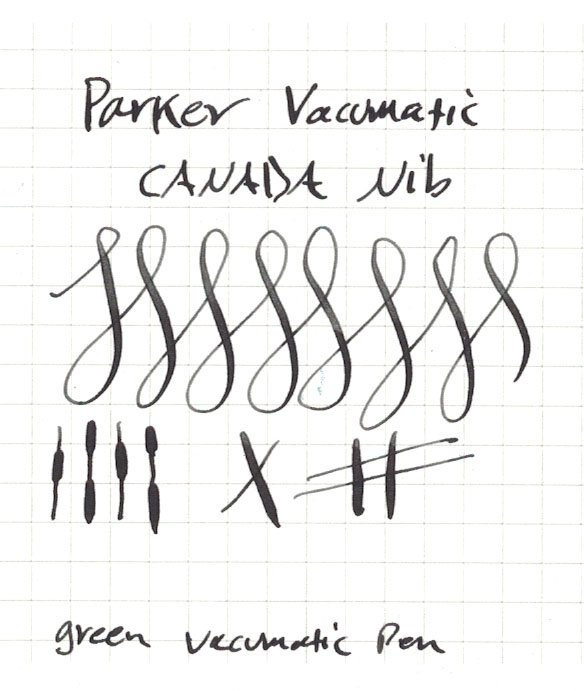 Parker Vacumatic
CANADA Nib
green Vacumatic Pen